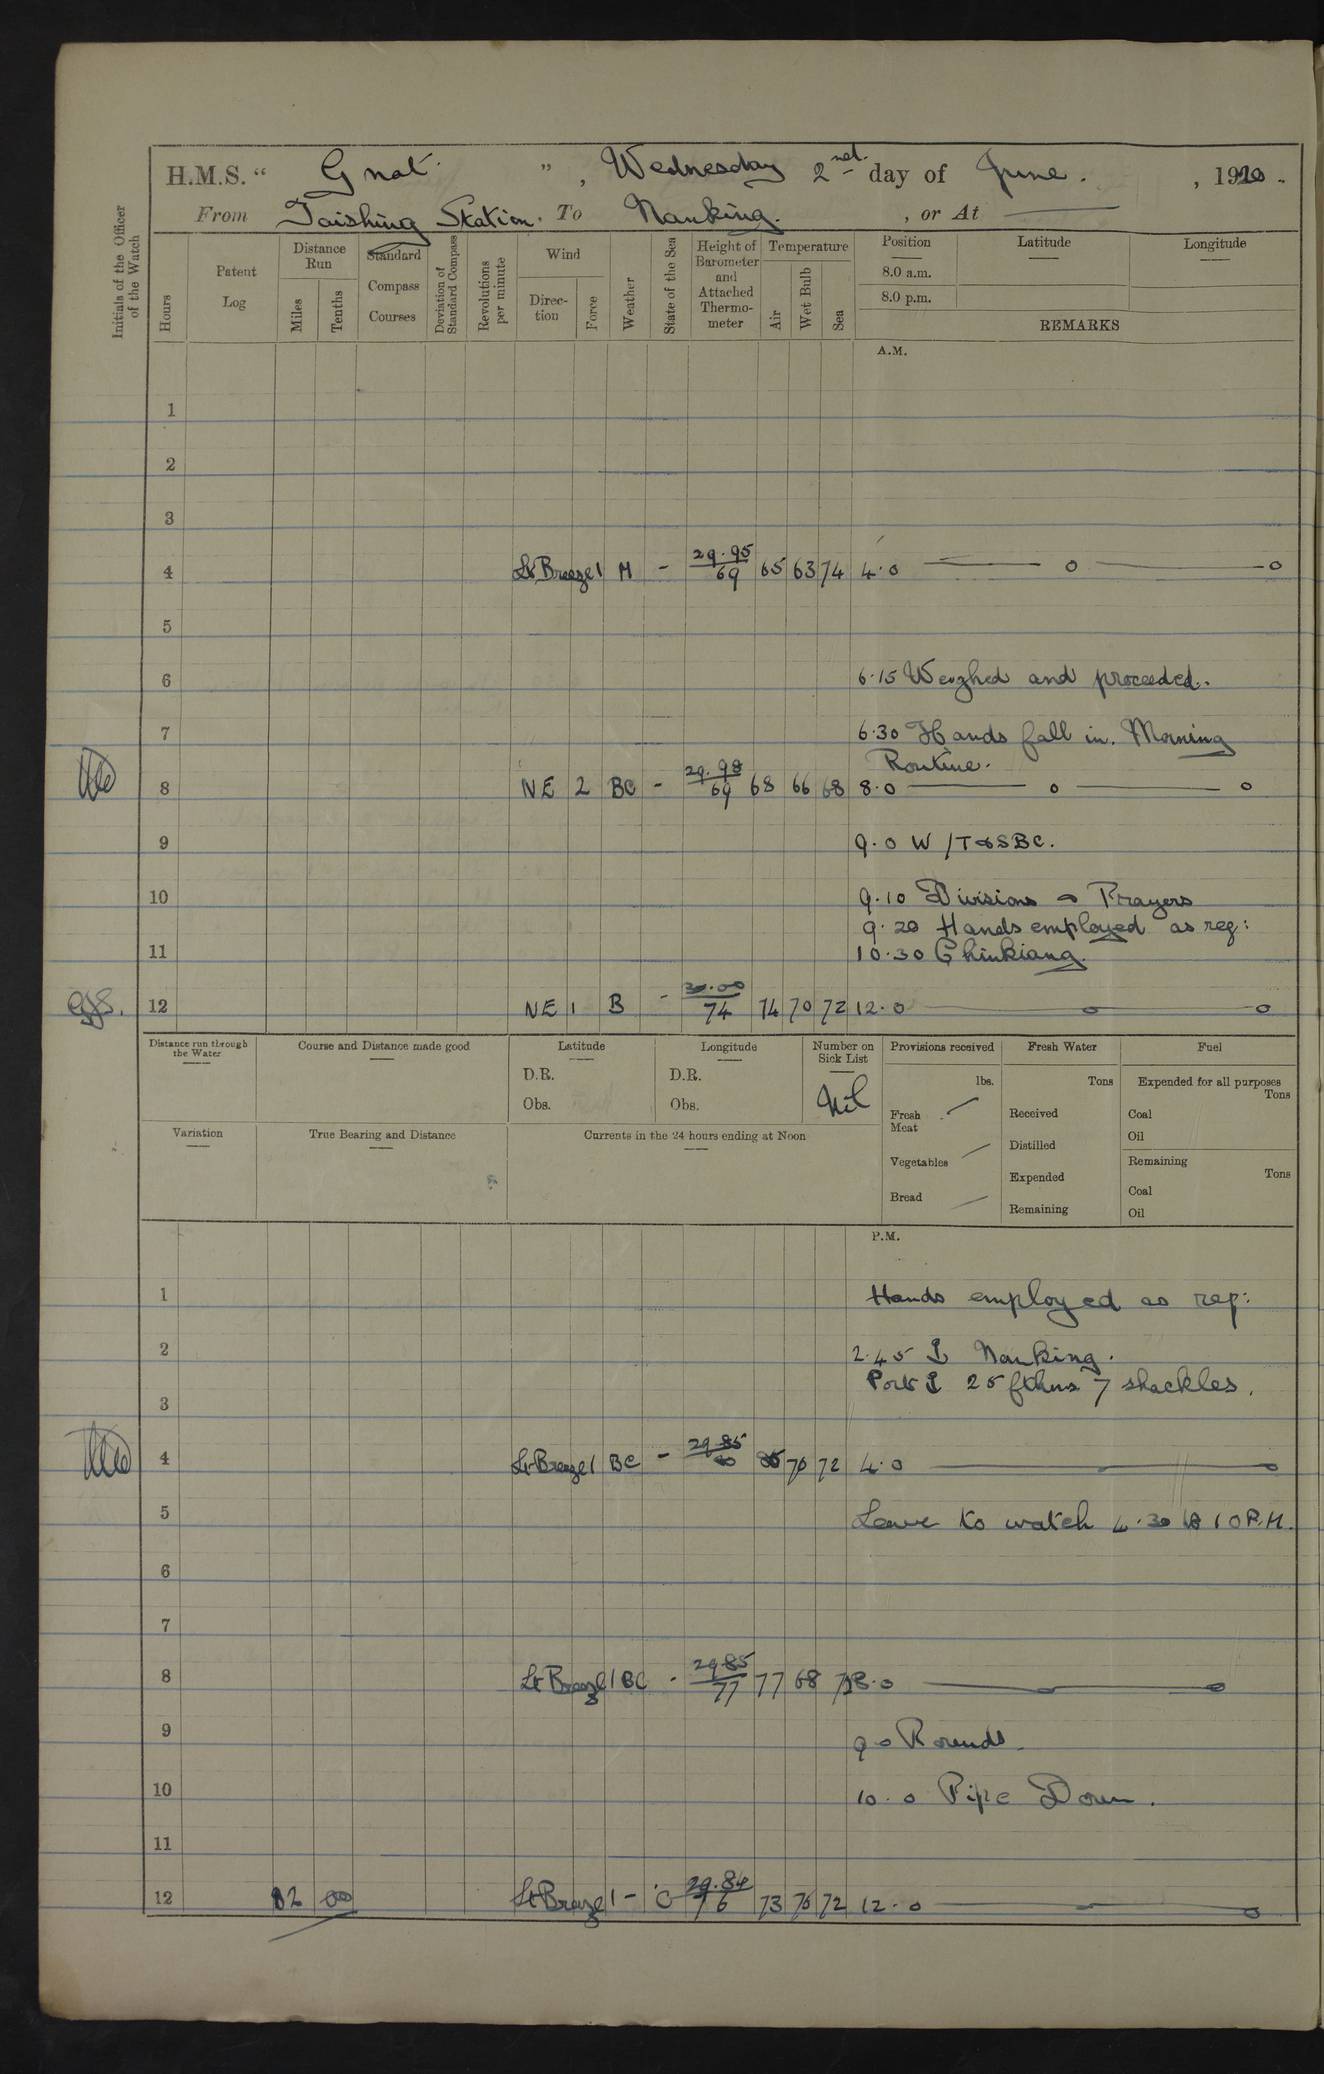 H.M.S. “ Gnat. ” , Wednesday 2nd day of June. , 1920.
From Taishing Station. To Nanking. , or At
Initials of the Officer of the Watch
Hours
Patent Log
Distance Run
Miles
Tenths
Standard Compass Courses
Deviation of Standard Compass
Revolutions per minute
Wind
Direc-tion
Force
Weather
State of the Sea
Height of Barometer and Attached Thermo-meter
Temperature
Air
Wet Bulb
Sea
Position Latitude Longitude
8.0 a.m.
8.0 p.m.
REMARKS
A.M.
1
2
3
4 Lt Breeze 1 M - 29.95/69 65 63 74 4.0
5
6 6.15 Weighed and proceeded.
7 6.30 Hands fall in. Morning
Routine.
8 NE 2 BC - 29.98/69 68 66 68 8.0
9 9.0 W/T & SBC.
10 9.10 Divisions & Prayers
9.20 Hands employed as req:
11 10.30 Chinkiang.
12 NE 1 B - 30.00/74 74 70 72 12.0
Distance run through the Water
Course and Distance made good
Latitude
D.R.
Obs.
Longitude
D.R.
Obs.
Number on Sick List
Nil
Provisions received
lbs.
Fresh Meat
Vegetables
Bread
Fresh Water
Tons
Received
Distilled
Expended
Remaining
Fuel
Expended for all purposes
Tons
Coal
Oil
Remaining
Tons
Coal
Oil
Variation
True Bearing and Distance
Currents in the 24 hours ending at Noon
P.M.
1 Hands employed as req:
2 2.45 Nanking.
Port 25 fthms 7 shackles.
3
4 Lt Breeze 1 BC - 29.85 70 72 4.0
5 Leave to watch 4.30 to 10 P.M.
6
7
8 Lt Breeze 1 BC - 29.85/77 77 68 8.0
9 9.0 Rounds.
10 10.0 Pipe Down.
11
12 82 00 Lt Breeze 1 - C 29.84/76 73 70 72 12.0